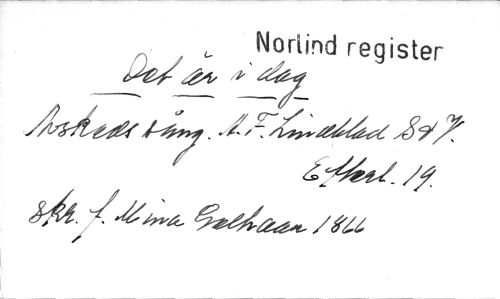 Norlind register
Det är i dag
Avskedssång. A. F. Lindblad S & V.
Efterl. 19.
skr. f. Mina Gelhaar 1866